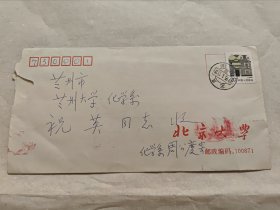 兰州市
兰州大学 化学系
祝英同志 收
北京大学
化学系周公度寄
邮政编码：100871